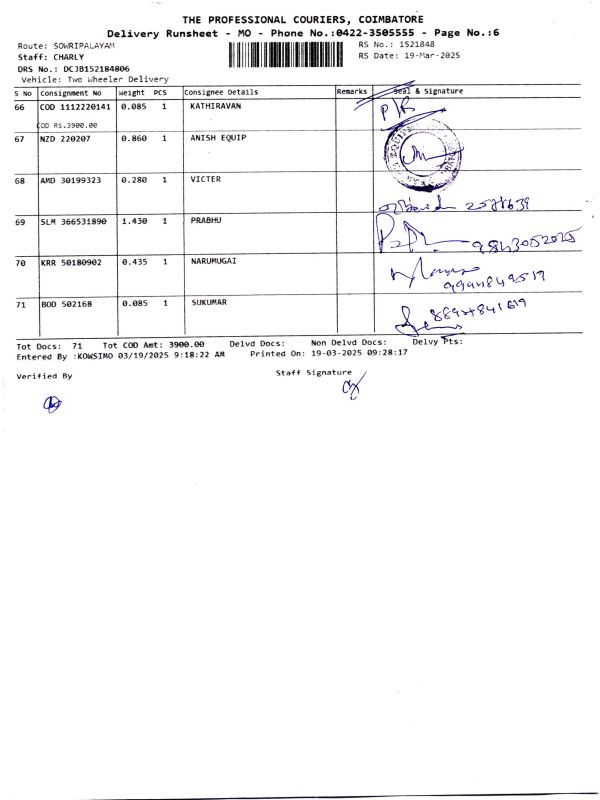 THE PROFESSIONAL COURIERS, COIMBATORE
Delivery Runsheet - MO - Phone No.:0422-3505555 - Page No.:6
Route: SOWRIPALAYAM RS No.: 1521848
Staff: CHARLY RS Date: 19-Mar-2025
DRS No.: DCJB152184806
Vehicle: Two Wheeler Delivery
S No Consignment No Weight PCS Consignee Details Remarks Seal & Signature
66 COD 1112220141 0.085 1 KATHIRAVAN
COD Rs.3900.00
67 NZD 220207 0.860 1 ANISH EQUIP
68 AMD 30199323 0.280 1 VICTER
69 SLM 366531890 1.430 1 PRABHU 9843052025
70 KRR 50180902 0.435 1 NARUMUGAI
71 BOD 502168 0.085 1 SUKUMAR
Tot Docs: 71 Tot COD Amt: 3900.00 Delvd Docs: Non Delvd Docs: Delvy Pts:
Entered By :KOWSIMO 03/19/2025 9:18:22 AM Printed On: 19-03-2025 09:28:17
Verified By Staff Signature